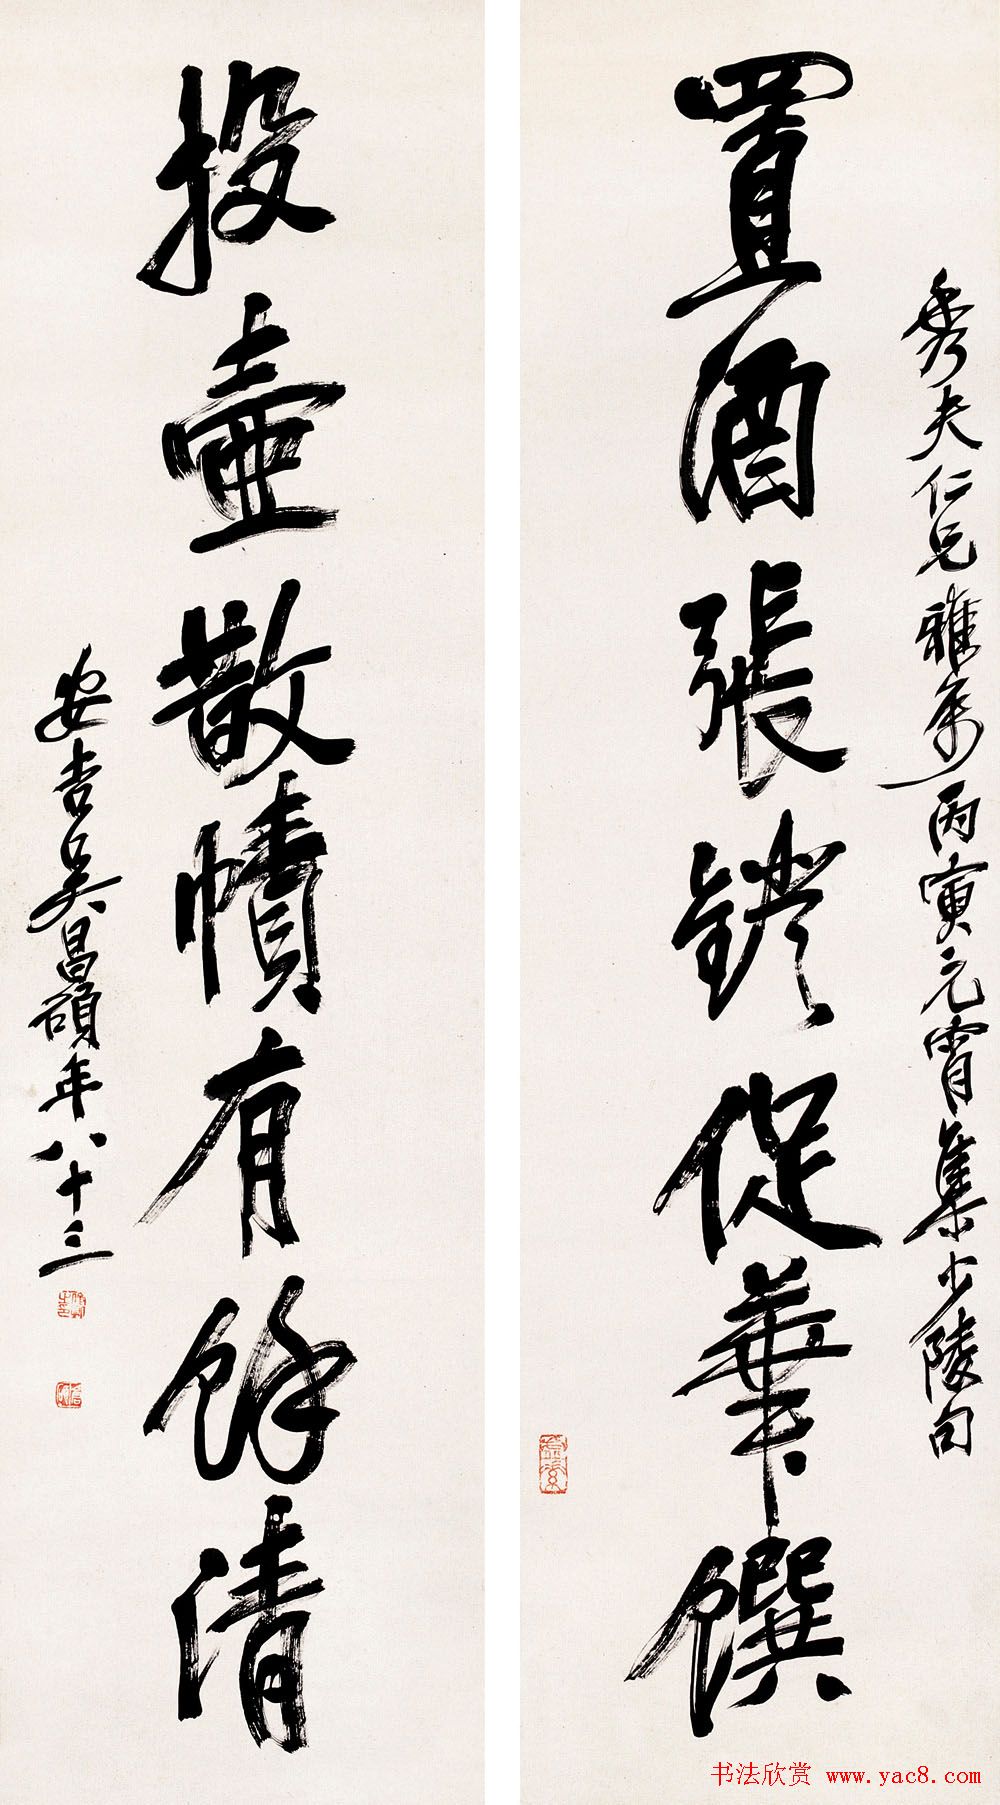 秀夫仁兄雅属丙寅元宵集少陵句
置酒張鐙促華饌
投壺散帙有餘清
安吉吳昌碩年八十三
书法欣赏 www.yac8.com